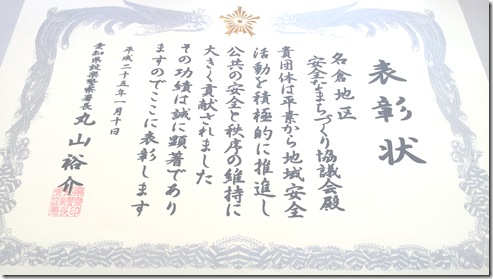 表彰状
名倉地区
安全なまちづくり協議会殿
貴団体は平素から地域安全
活動を積極的に推進し
公共の安全と秩序の維持に
大きく貢献されました
その功績は誠に顕著であり
ますのでここに表彰します
平成二十五年一月十日
愛知県設楽警察署長 丸山裕介